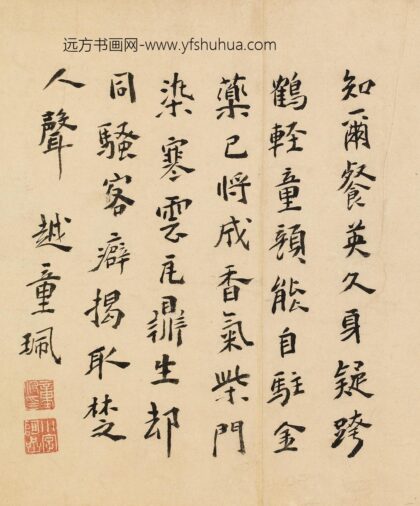 远方书画网-www.yfshuhua.com
知爾餐英久身疑跨
鶴輕童顏能自駐金
藥已將成香氣柴門
染寒雲瓦鼎生却
同騷客癖揭取楚
人聲 越童珮